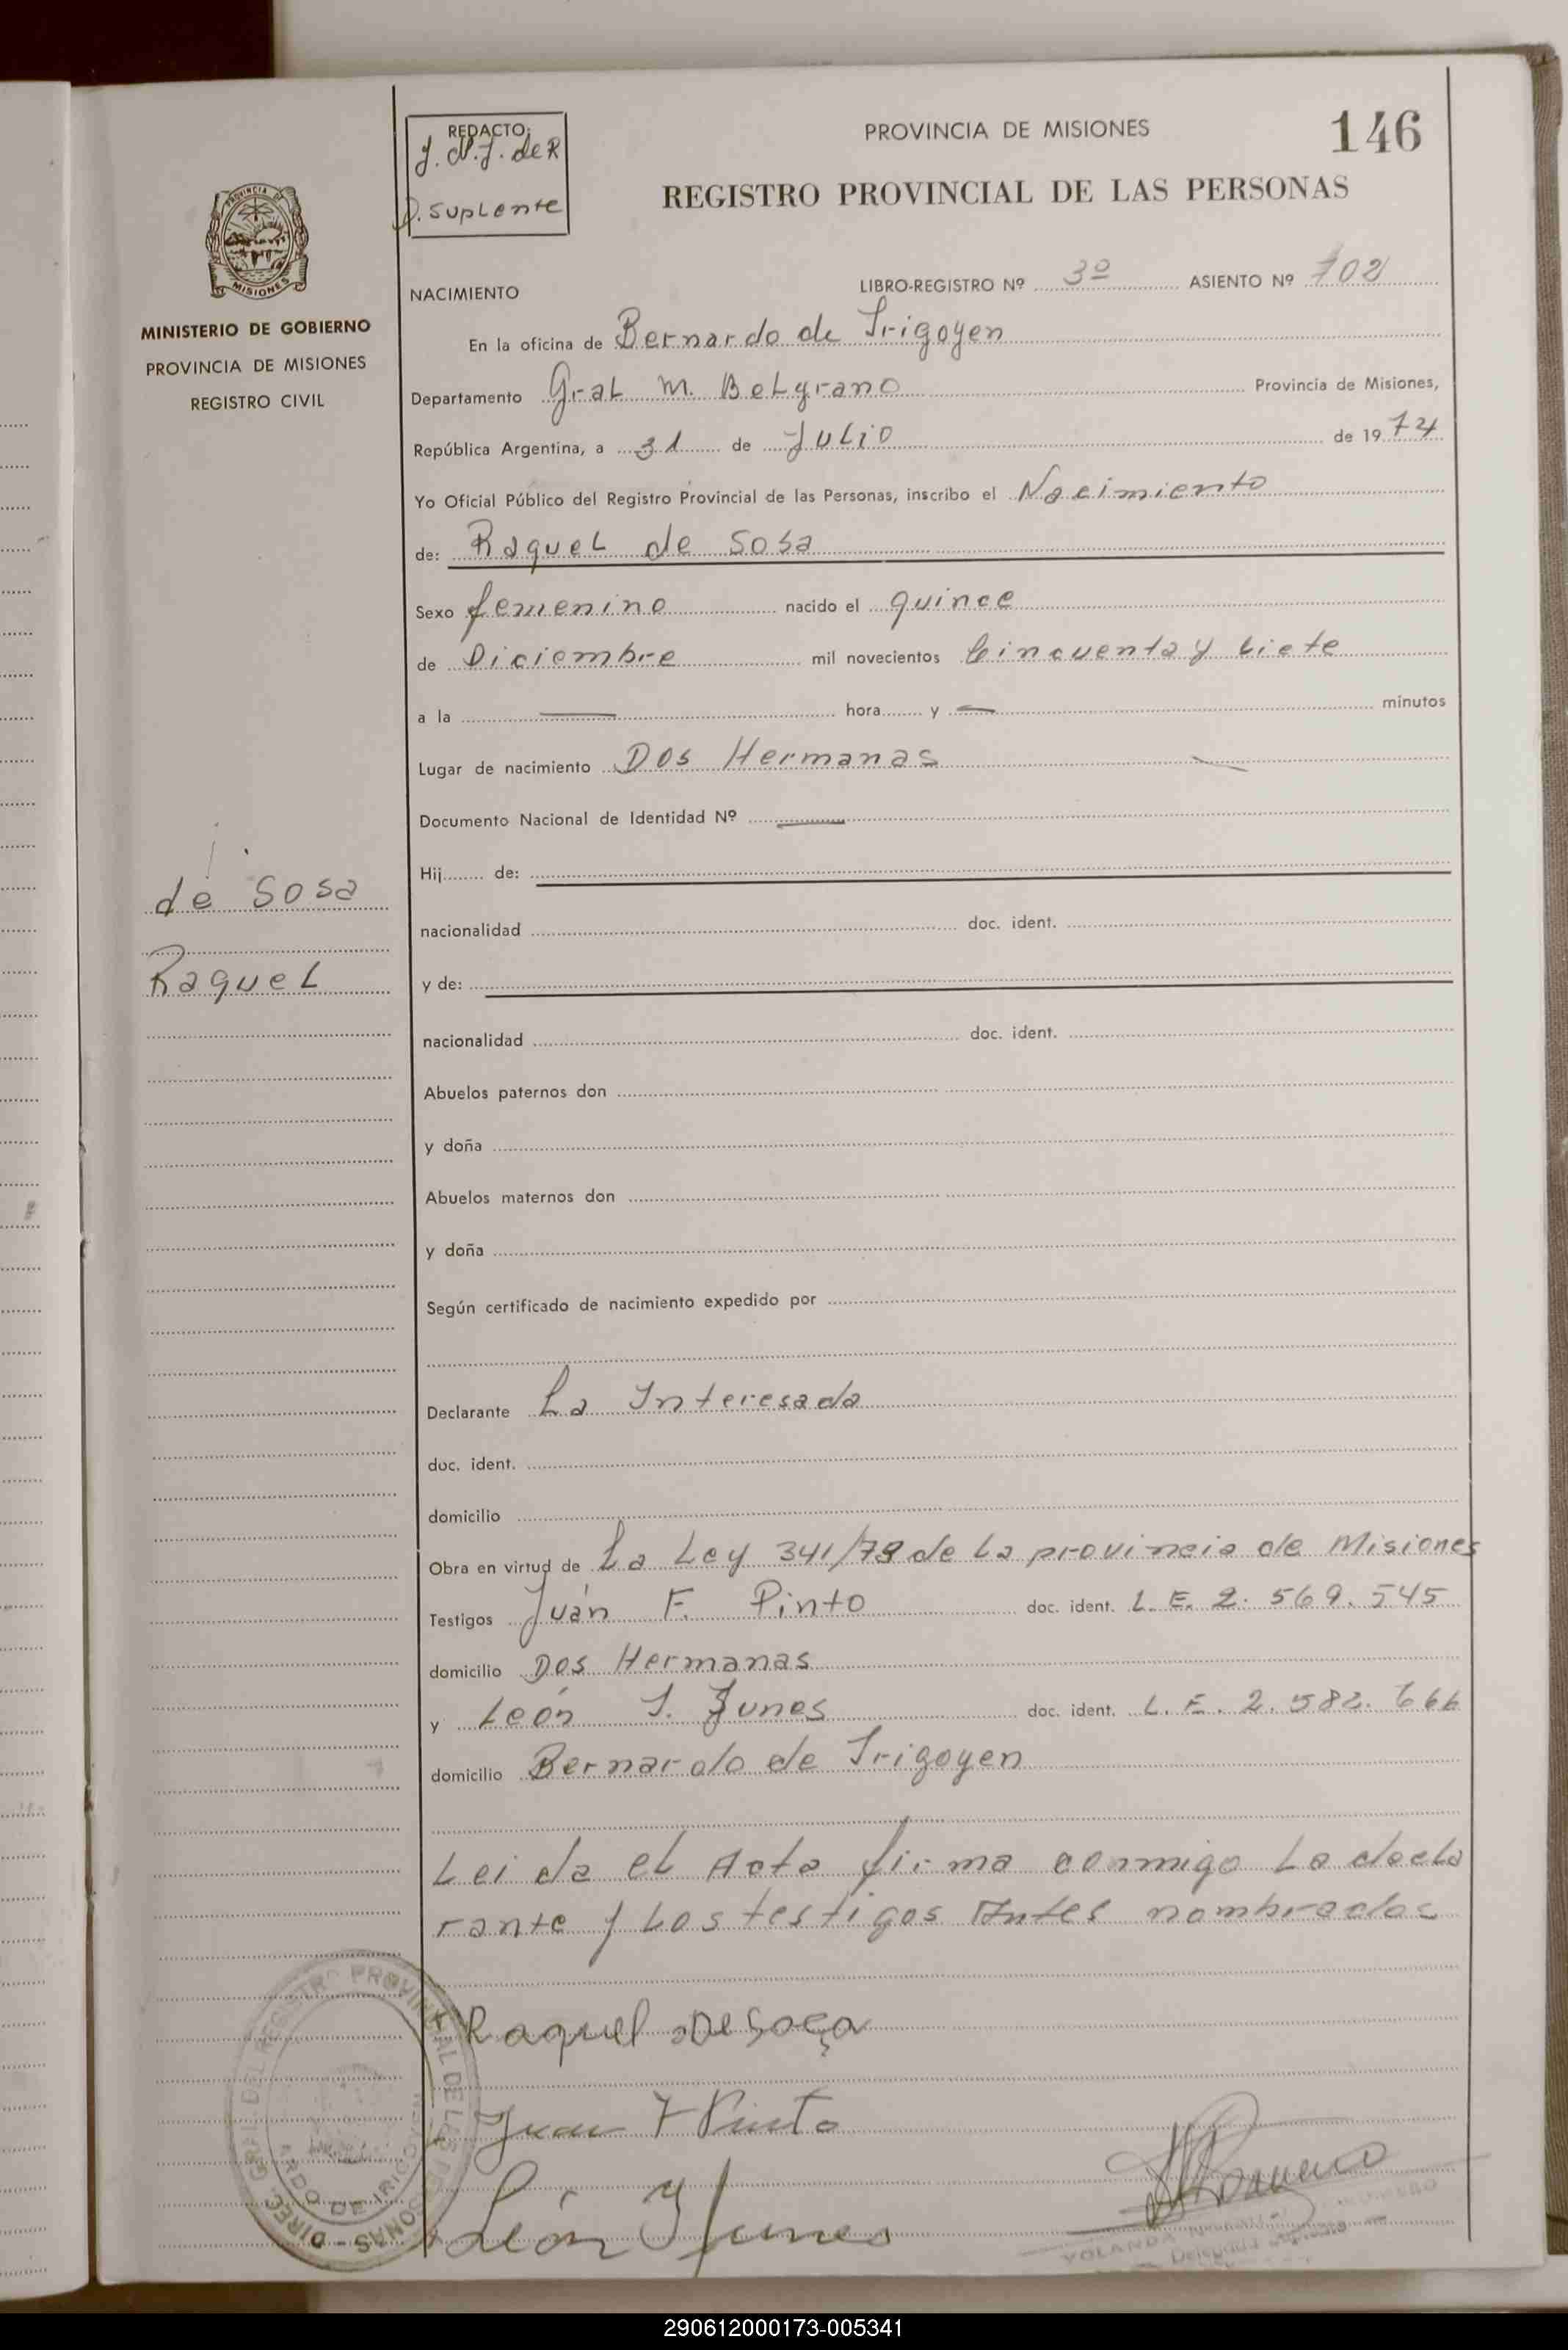 REDACTO:
J. N. J. de R
D. Suplente
PROVINCIA DE MISIONES
146
REGISTRO PROVINCIAL DE LAS PERSONAS
PROVINCIA DE
MISIONES
MINISTERIO DE GOBIERNO
PROVINCIA DE MISIONES
REGISTRO CIVIL
NACIMIENTO LIBRO-REGISTRO Nº 3º ASIENTO Nº 702
En la oficina de Bernardo de Irigoyen
Departamento Gral M. Belgrano Provincia de Misiones,
República Argentina, a 31 de Julio de 1974
Yo Oficial Público del Registro Provincial de las Personas, inscribo el Nacimiento
de: Raquel de Sosa
Sexo femenino nacido el quince
de Diciembre mil novecientos Cincuenta y Ciete
a la — hora y — minutos
Lugar de nacimiento Dos Hermanas
Documento Nacional de Identidad Nº —
Hij de:
de Sosa
nacionalidad doc. ident.
Raquel
y de:
nacionalidad doc. ident.
Abuelos paternos don
y doña
Abuelos maternos don
y doña
Según certificado de nacimiento expedido por
Declarante La Interesada
doc. ident.
domicilio
Obra en virtud de La Ley 341/79 de la provincia de Misiones
Testigos Juán F. Pinto doc. ident. L. E. 2.569.545
domicilio Dos Hermanas
y León I. Funes doc. ident. L. E. 2.582.666
domicilio Bernardo de Irigoyen
Leida el Acta firma conmigo la decla
rante y los testigos Antes nombrados
Raquel De Soça
Juan F Pinto
León I Funes
YOLANDA
Delegada Suplente
290612000173-005341